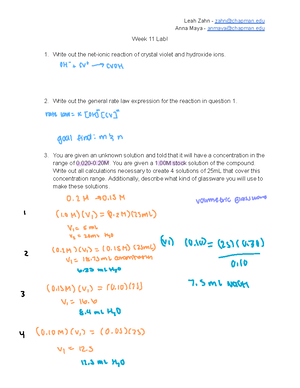 Leah Zahn - zahn@chapman.edu
Anna Maya - anmaya@chapman.edu
Week 11 Lab!
1. Write out the net-ionic reaction of crystal violet and hydroxide ions.
OH⁻ + CV⁺ → CVOH
2. Write out the general rate law expression for the reaction in question 1.
rate law = K [OH]ᵐ[CV]ⁿ
goal find: m & n
3. You are given an unknown solution and told that it will have a concentration in the
range of 0.020-0.20M. You are given a 1.00M stock solution of the compound.
Write out all calculations necessary to create 4 solutions of 25mL that cover this
concentration range. Additionally, describe what kind of glassware you will use to
make these solutions.
0.2 M → 0.15 M
volumetric glassware
1
(1.0 M)(V₁) = (0.2M)(25mL)
V₁ = 5 mL
V₂ = 20mL H₂O
2
(0.2M)(V₁) = (0.15M)(25mL)
V₁ = 18.75mL
6.25 mL H₂O
(V₁) (0.10) = (25)(0.30)
0.10
7.5 mL
3
(0.15M)(V₁) = (0.10)(25)
V₁ = 16.6
8.4 mL H₂O
4
(0.10M)(V₁) = (0.05)(25)
V₁ = 12.5
12.5 mL H₂O